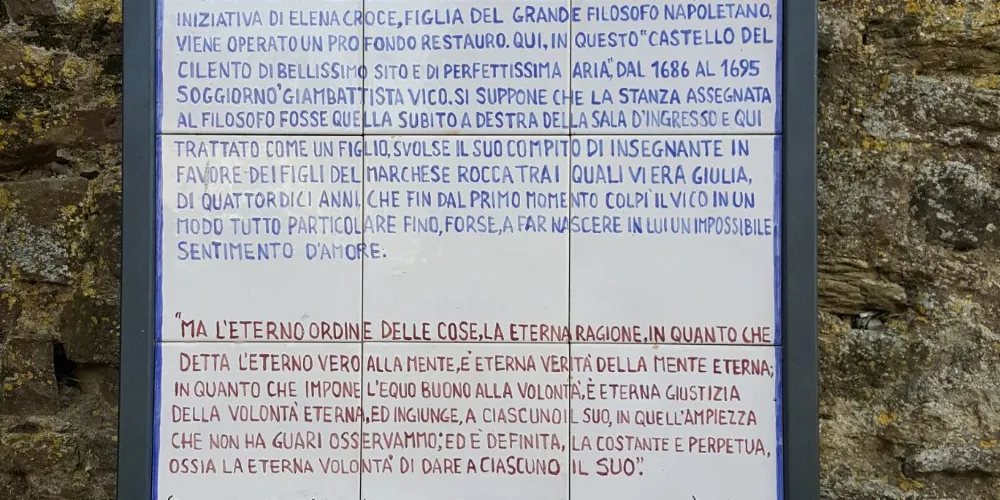 INIZIATIVA DI ELENA CROCE, FIGLIA DEL GRANDE FILOSOFO NAPOLETANO,
VIENE OPERATO UN PROFONDO RESTAURO. QUI, IN QUESTO "CASTELLO DEL
CILENTO DI BELLISSIMO SITO E DI PERFETTISSIMA ARIA", DAL 1686 AL 1695
SOGGIORNO' GIAMBATTISTA VICO. SI SUPPONE CHE LA STANZA ASSEGNATA
AL FILOSOFO FOSSE QUELLA SUBITO A DESTRA DELLA SALA D'INGRESSO E QUI
TRATTATO COME UN FIGLIO, SVOLSE IL SUO COMPITO DI INSEGNANTE IN
FAVORE DEI FIGLI DEL MARCHESE ROCCA TRA I QUALI VI ERA GIULIA,
DI QUATTORDICI ANNI, CHE FIN DAL PRIMO MOMENTO COLPÌ IL VICO IN UN
MODO TUTTO PARTICOLARE FINO, FORSE, A FAR NASCERE IN LUI UN IMPOSSIBILE
SENTIMENTO D'AMORE.
"MA L'ETERNO ORDINE DELLE COSE, LA ETERNA RAGIONE, IN QUANTO CHE
DETTA L'ETERNO VERO ALLA MENTE, E' ETERNA VERITÀ DELLA MENTE ETERNA;
IN QUANTO CHE IMPONE L'EQUO BUONO ALLA VOLONTÀ, È ETERNA GIUSTIZIA
DELLA VOLONTÀ ETERNA, ED INGIUNGE, A CIASCUNO IL SUO, IN QUELL'AMPIEZZA
CHE NON HA GUARI OSSERVAMMO; ED È DEFINITA, LA COSTANTE E PERPETUA,
OSSIA LA ETERNA VOLONTÀ DI DARE A CIASCUNO IL SUO".